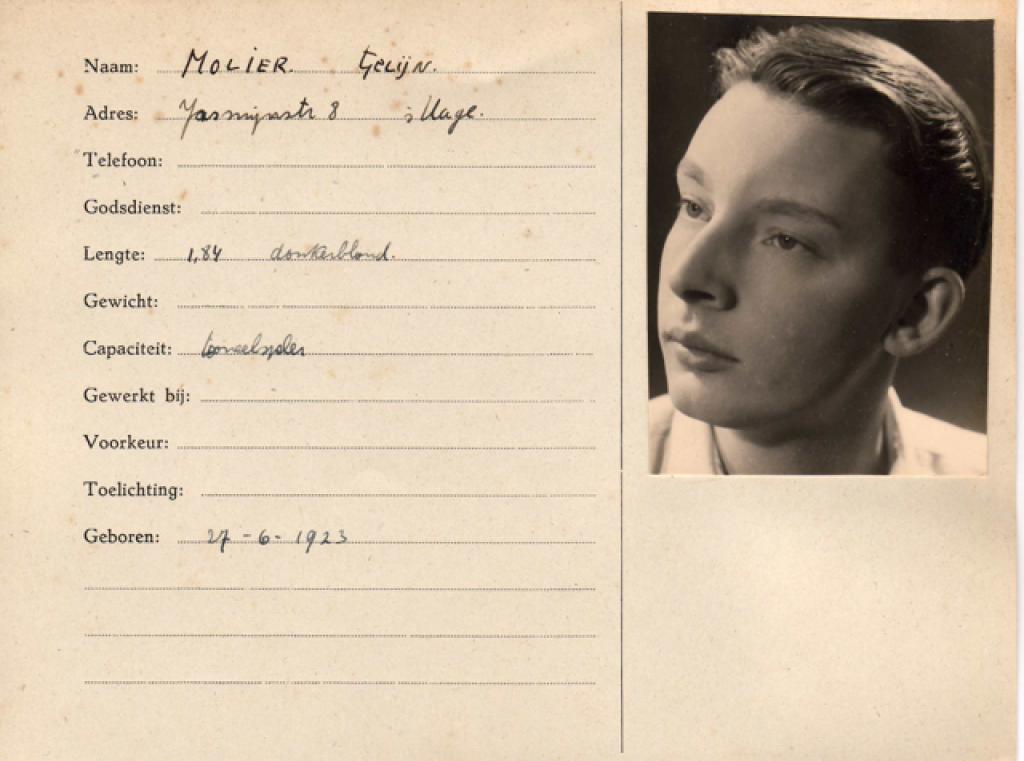 Naam: MOLIER. Gelijn.
Adres: Jasmijnstr 8 's Hage.
Telefoon:
Godsdienst:
Lengte: 1,84 donkerblond.
Gewicht:
Capaciteit: toneelspeler
Gewerkt bij:
Voorkeur:
Toelichting:
Geboren: 27-6-1923